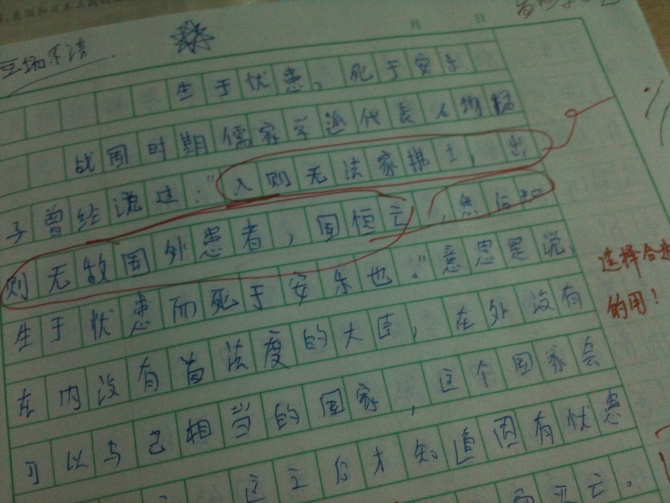 月 日
互动不清
生于忧患，死于安乐
战国时期儒家学派代表人物孟
子曾经说过："入则无法家拂士，出
则无敌国外患者，国恒亡，然后知
生于忧患而死于安乐也。"意思是说
在内没有守法度的大臣，在外没有
可以与己相当的国家，这个国家会
，这之后才知道因有忧患
而死亡。
选择合适
的用！